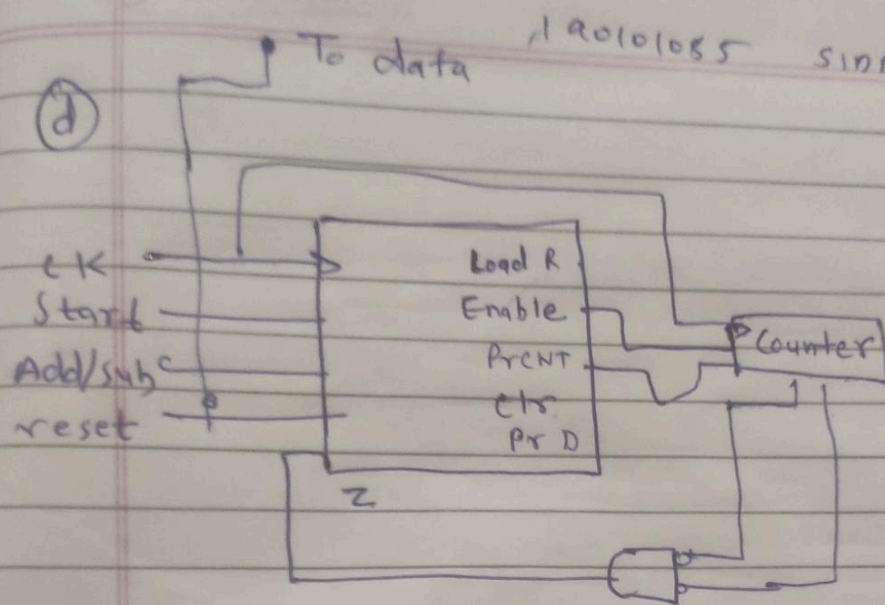 To data
190101085
d
CK
Start
Add/sub
reset
Load R
Enable
PrCNT
Clr
Pr D
Z
Counter